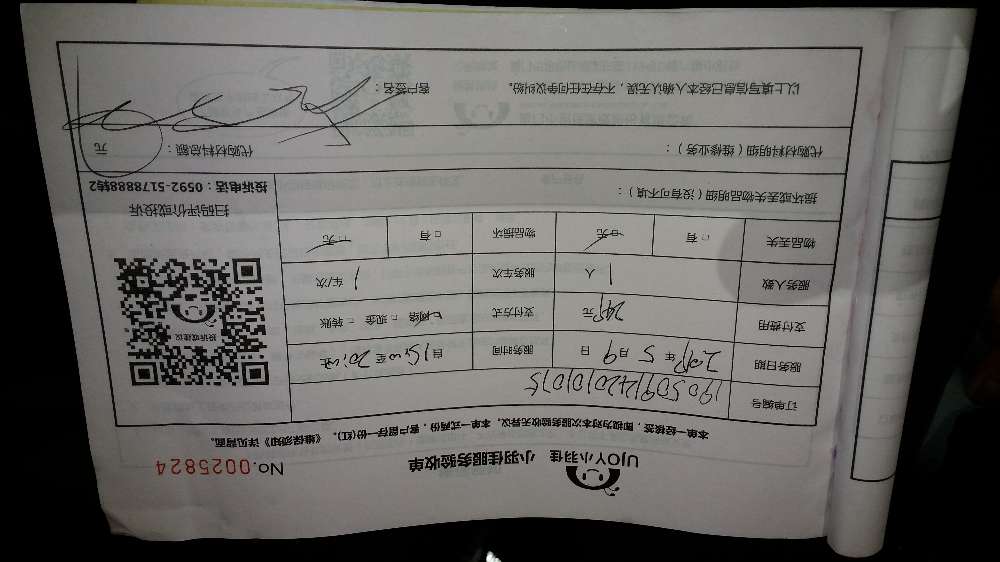 UJOY小羽佳 小羽佳服务验收单
No.0025824
本单一经续签，即视为对本次服务验收无异议，本单一式两份，客户留存一份(红)。《维保须知》详见背面。
订单编号 190509142010101015
服务日期 2019年5月9日 服务时间 自15:00至20:00止
支付费用 249元 支付方式 ☑网络 □现金 □转账
服务人数 1人 服务车次 1车/次
物品丢失 □有 ☑无 物品损坏 □有 ☑无
投诉或建议
扫码评价或投诉
投诉电话：0592-5178888转2
损坏或丢失物品明细（没有可不填）：
代购材料明细（维修业务）： 代购材料总额： 元
以上填写信息已经本人确认无误，不存在任何争议纠纷。 客户签名：